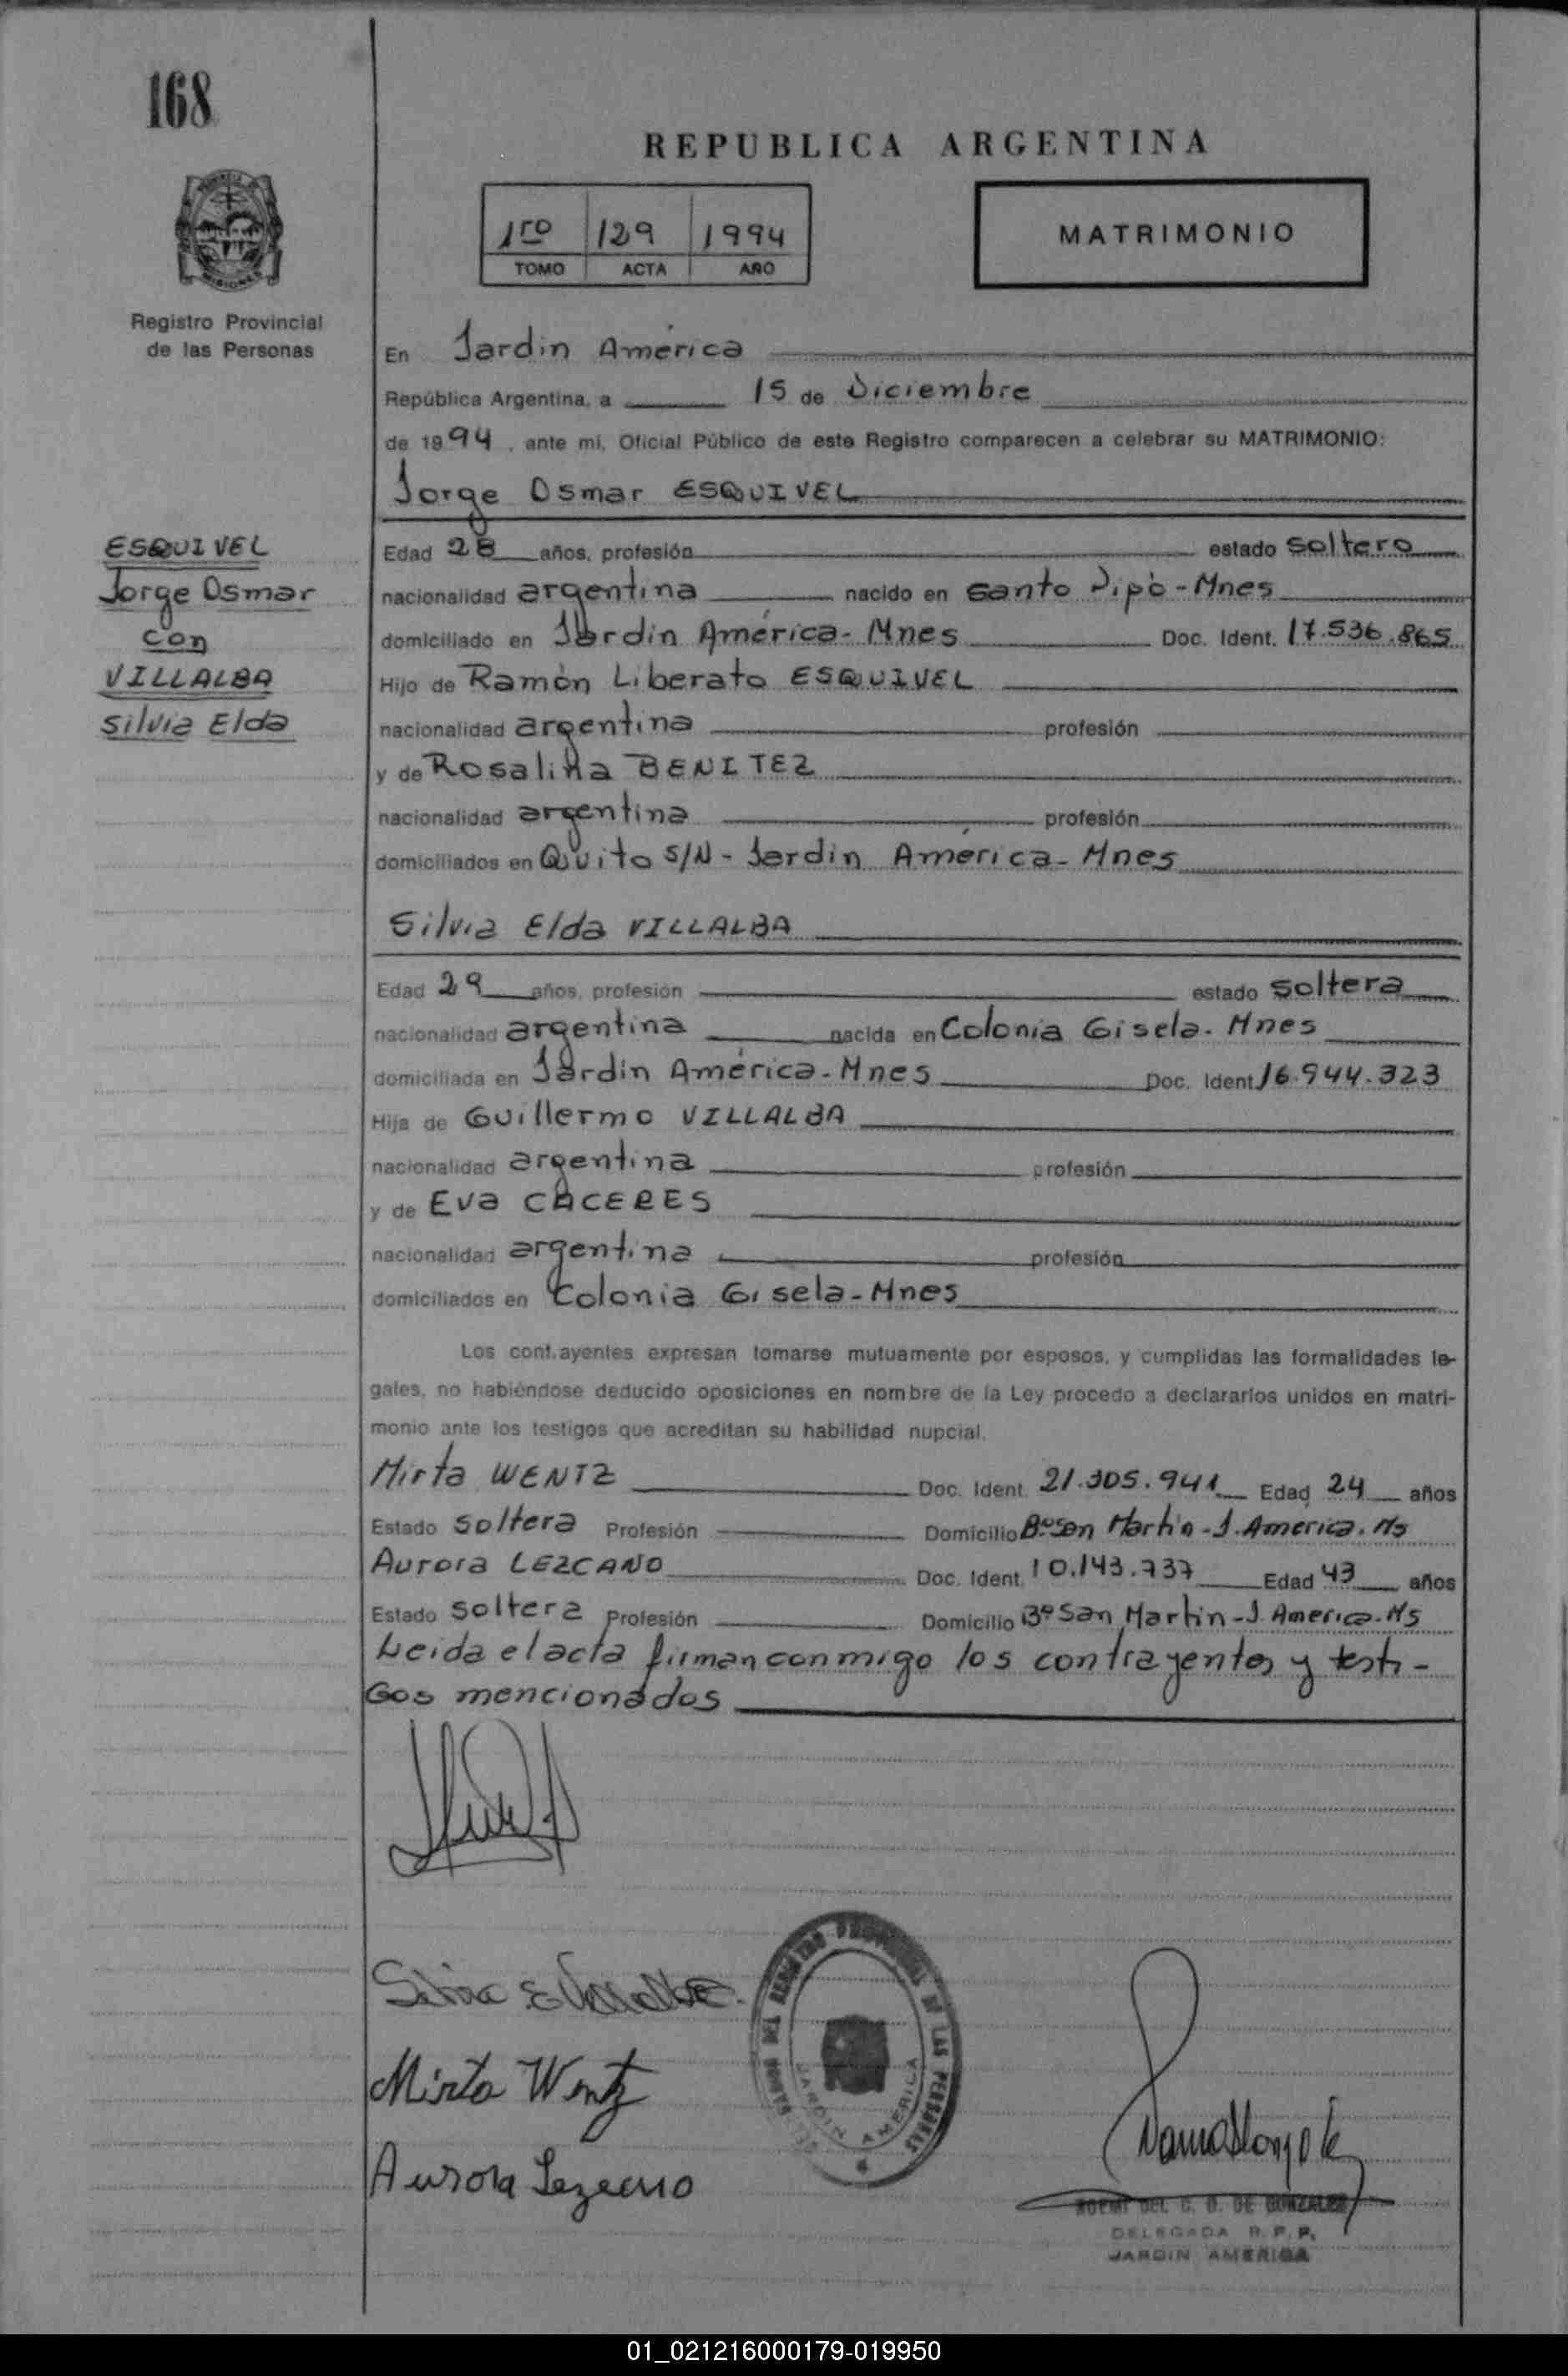 168
REPUBLICA ARGENTINA
1ro 129 1994
TOMO ACTA AÑO
MATRIMONIO
Registro Provincial
de las Personas
En Jardin América
República Argentina, a 15 de Diciembre
de 1994, ante mi, Oficial Público de este Registro comparecen a celebrar su MATRIMONIO:
Jorge Osmar ESQUIVEL
ESQUIVEL
Jorge Osmar
con
VILLALBA
Silvia Elda
Edad 28 años, profesión estado soltero
nacionalidad argentina nacido en Santo Pipó - Mnes
domiciliado en Jardin América - Mnes Doc. Ident. 17.536.865
Hijo de Ramón Liberato ESQUIVEL
nacionalidad argentina profesión
y de Rosalina BENITEZ
nacionalidad argentina profesión
domiciliados en Quito S/N - Jardin América - Mnes
Silvia Elda VILLALBA
Edad 29 años, profesión estado soltera
nacionalidad argentina nacida en Colonia Gisela - Mnes
domiciliada en Jardin América - Mnes Doc. Ident 16.944.323
Hija de Guillermo VILLALBA
nacionalidad argentina profesión
y de Eva CACERES
nacionalidad argentina profesión
domiciliados en Colonia Gisela - Mnes
Los contrayentes expresan tomarse mutuamente por esposos, y cumplidas las formalidades le-
gales, no habiéndose deducido oposiciones en nombre de la Ley procedo a declararlos unidos en matri-
monio ante los testigos que acreditan su habilidad nupcial.
Mirta WENTZ Doc. Ident. 21.305.941 Edad 24 años
Estado soltera Profesión Domicilio Bº San Martin - J. America. Ms
Aurora LEZCANO Doc. Ident. 10.143.737 Edad 43 años
Estado soltera Profesión Domicilio Bº San Martin - J. America - Ms
Leida el acta firman conmigo los contrayentes y testi-
gos mencionados
Silvia E Villalba
Mirta Wentz
Aurora Lezcano
DEL REGISTRO PROVINCIAL DE LAS PERSONAS
JARDIN AMERICA
NOEMI DEL C. D. DE GONZALEZ
DELEGADA R. P. P.
JARDIN AMERICA
01_021216000179-019950